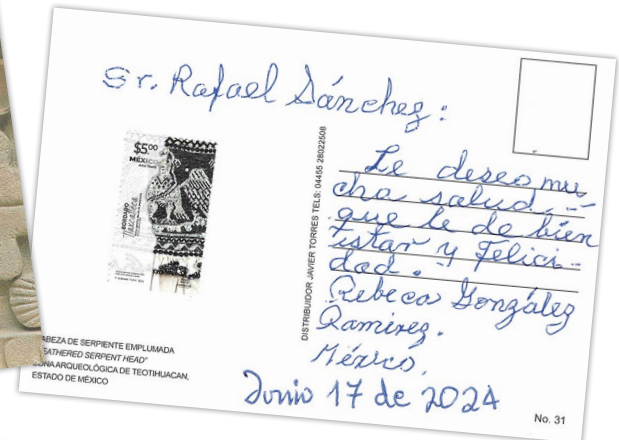 Sr. Rafael Sánchez:
$5.00
MÉXICO
BORDADO
DISTRIBUIDOR JAVIER TORRES TELS: 04455 28022508
Le deseo mu
cha salud, -
que le de bien
istar y Felici-
dad.
Rebeca González
Ramirez.
México,
Junio 17 de 2024
ABEZA DE SERPIENTE EMPLUMADA
EATHERED SERPENT HEAD"
ONA ARQUEOLÓGICA DE TEOTIHUACAN,
ESTADO DE MÉXICO
No. 31